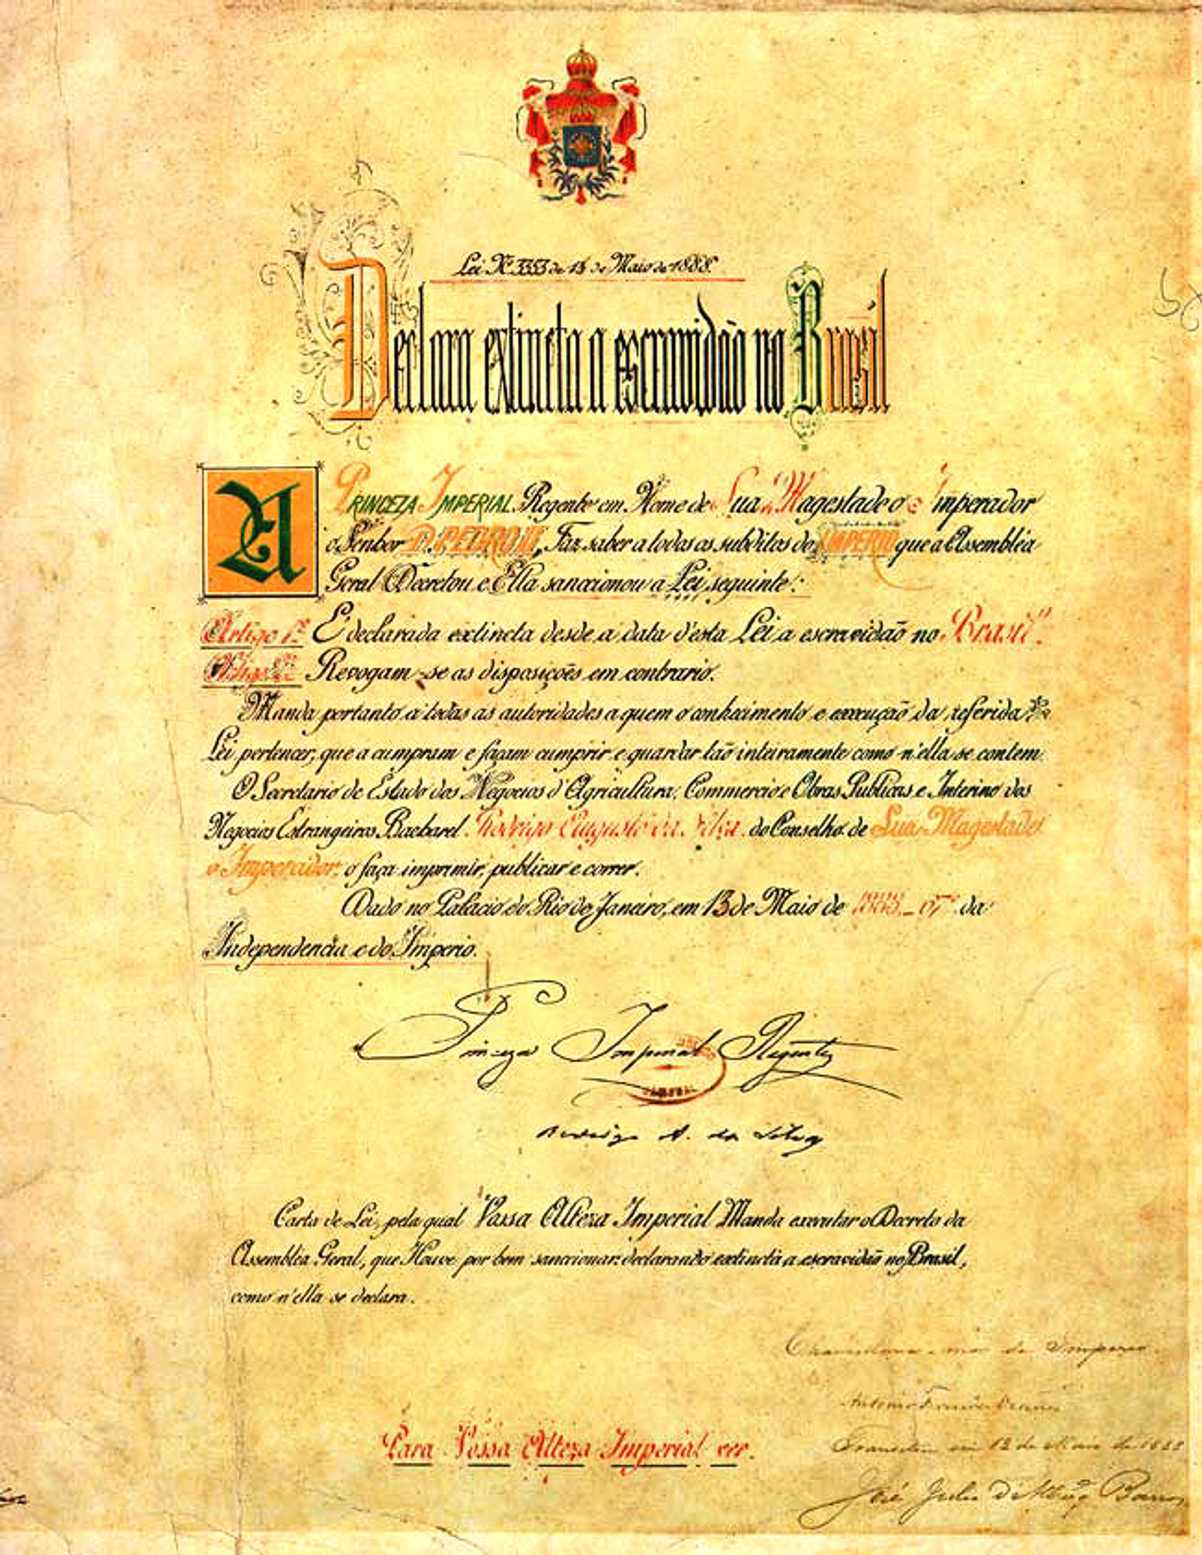 Lei Nº 3353 de 13 de Maio de 1888.
Declara extincta a escravidão no Brasil
A PRINCEZA IMPERIAL Regente em Nome de Sua Magestade o Imperador
o Senhor D. PEDRO II, Faz saber a todos os subditos do IMPERIO que a Assembléa
Geral Decretou e Ella sanccionou a Lei seguinte:
Artigo 1º É declarada extincta desde a data d'esta Lei a escravidão no Brasil.
Revogam-se as disposições em contrario.
Manda portanto a todas as autoridades a quem o conhecimento e execução da referida
Lei pertencer, que a cumpram e façam cumprir e guardar tão inteiramente como n'ella se contem.
O Secretario de Estado dos Negocios d'Agricultura, Commercio e Obras Publicas e Interino dos
Negocios Estrangeiros, Bacharel Rodrigo Augusto da Silva, do Conselho de Sua Magestade
o Imperador, o faça imprimir, publicar e correr.
Dado no Palacio do Rio de Janeiro, em 13 de Maio de 1888_67º da
Independencia e do Imperio.
Princeza Imperial Regente
Rodrigo A. da Silva
Carta de Lei, pela qual Vossa Alteza Imperial Manda executar o Decreto da
Assembléa Geral, que Houve por bem sanccionar declarando extincta a escravidão no Brasil,
como n'ella se declara.
Para Vossa Alteza Imperial ver.
Chancelaria-mór do Imperio
Transitou em 13 de Maio de 1888
José Julio de Barros